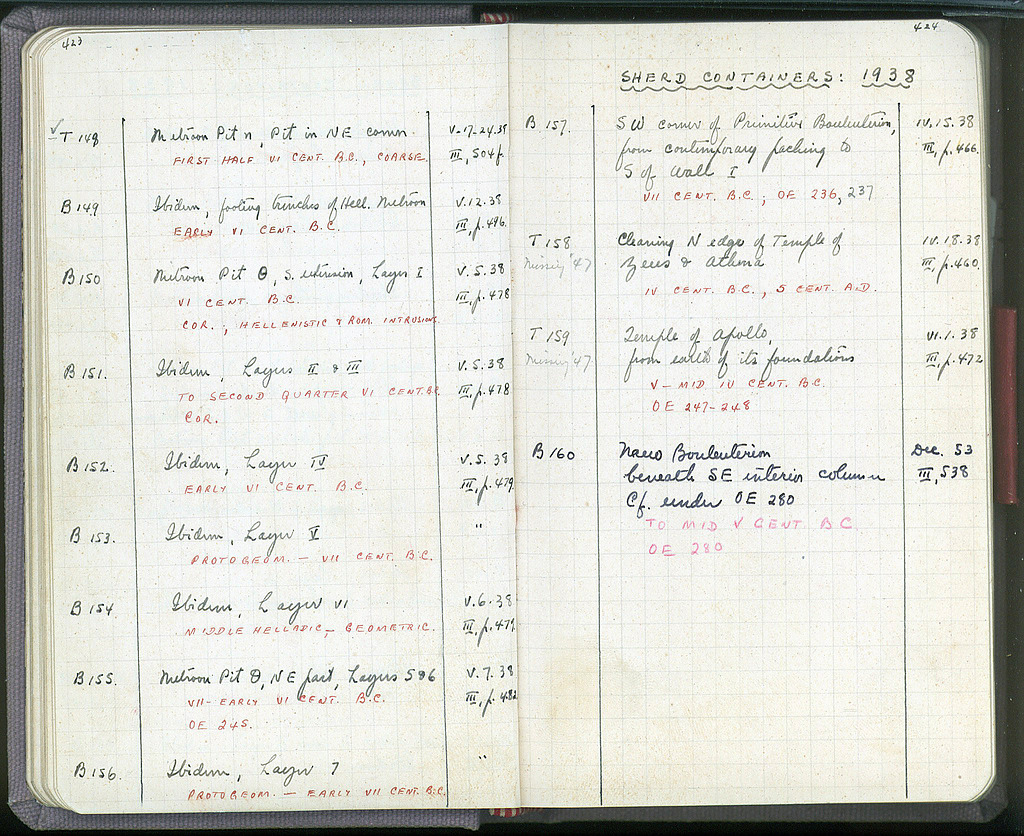 423
T 148 Metroon Pit n, Pit in NE corner. V-17-24.38
FIRST HALF VI CENT. B.C., COARSE. III, 504f.
B 149 Ibidem, footing trenches of Hell. Metroon V.12.38
EARLY VI CENT. B.C. III, p.496.
B 150 Metroon Pit Θ, S. extension, Layer I V. 5. 38
VI CENT. B.C. III, p.478
COR., HELLENISTIC & ROM. INTRUSIONS.
B 151. Ibidem, Layers II & III V. 5. 38
TO SECOND QUARTER VI CENT. B.C. III, p.478
COR.
B 152. Ibidem, Layer IV V. 5. 38
EARLY VI CENT. B.C. III, p.479
B 153. Ibidem, Layer V "
PROTOGEOM. — VII CENT. B.C.
B 154 Ibidem, Layer VI V. 6. 38
MIDDLE HELLADIC — GEOMETRIC. III, p.479.
B 155. Metroon Pit Θ, NE part, Layers 5 & 6 V. 7. 38
VII - EARLY VI CENT. B.C. III, p. 482
OE 245.
B 156. Ibidem, Layer 7 "
PROTOGEOM. — EARLY VII CENT. B.C.
424
SHERD CONTAINERS: 1938
B 157. SW corner of Primitive Bouleuterion, IV. 15. 38
from contemporary packing to III, p.466.
S of Wall I
VII CENT. B.C.; OE 236, 237
T 158 Cleaning N edge of Temple of IV. 18. 38
Missing '47 Zeus & Athena III, p.460.
IV CENT. B.C., 5 CENT. A.D.
T 159 Temple of Apollo, VI. 1. 38
Missing '47 from earth of its foundations III, p.472
V — MID IV CENT. B.C.
OE 247-248
B 160 Bouleuterion Dec. 53
beneath SE interior column III, 538
Cf. under OE 280
TO MID V CENT. B C.
OE 280